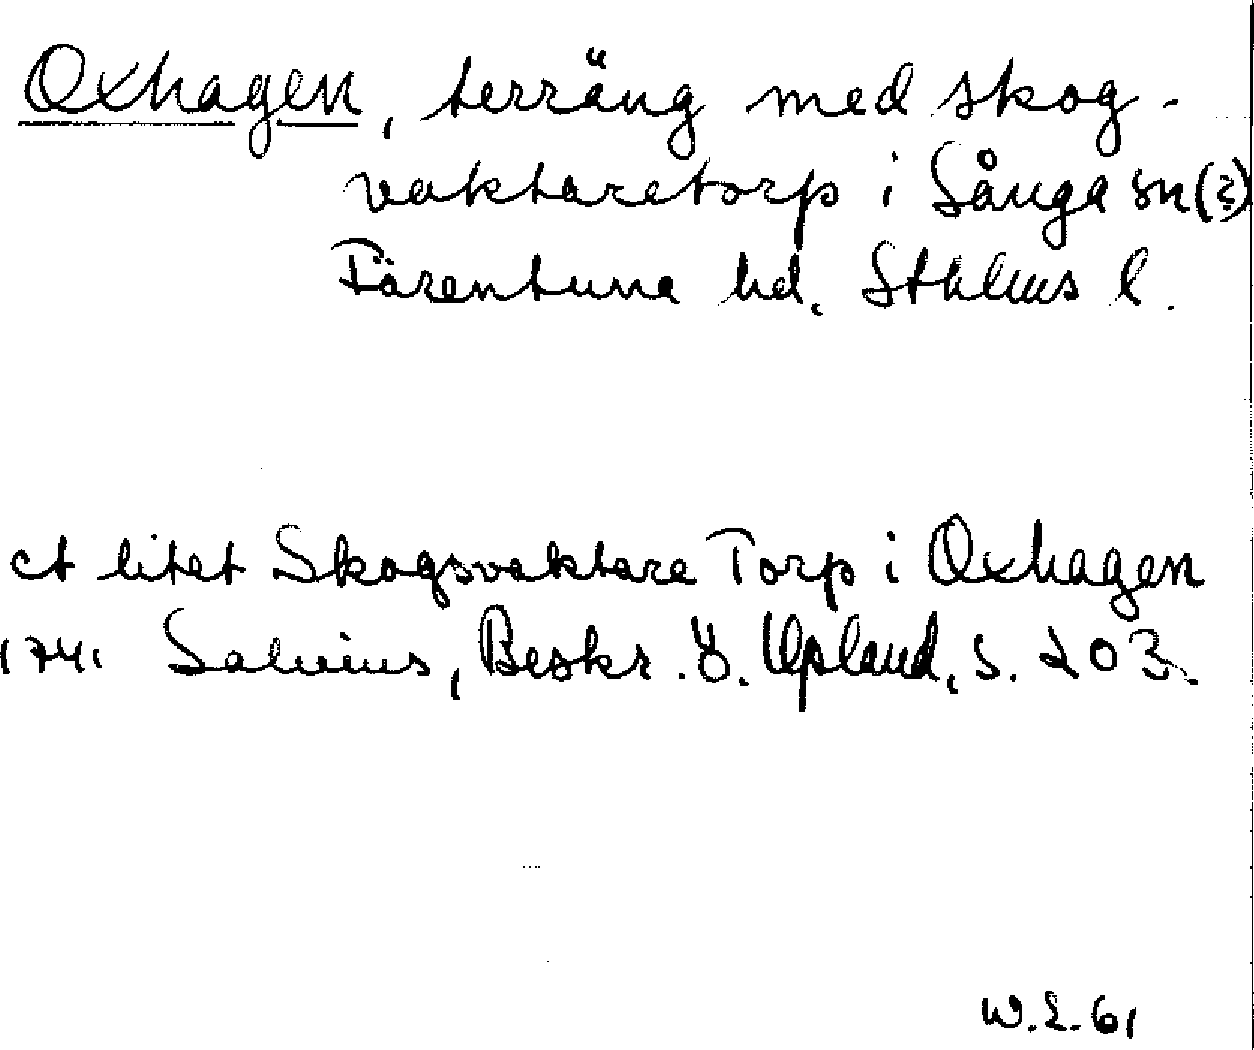 Oxhagen, terräng med skog-
vaktaretorp i Sånga sn(?)
Färentuna hd. Sthlms l.
et litet Skogsvaktare Torp i Oxhagen
1741 Salvius, Beskr. ö. Upland, s. 203.
W.L. 61